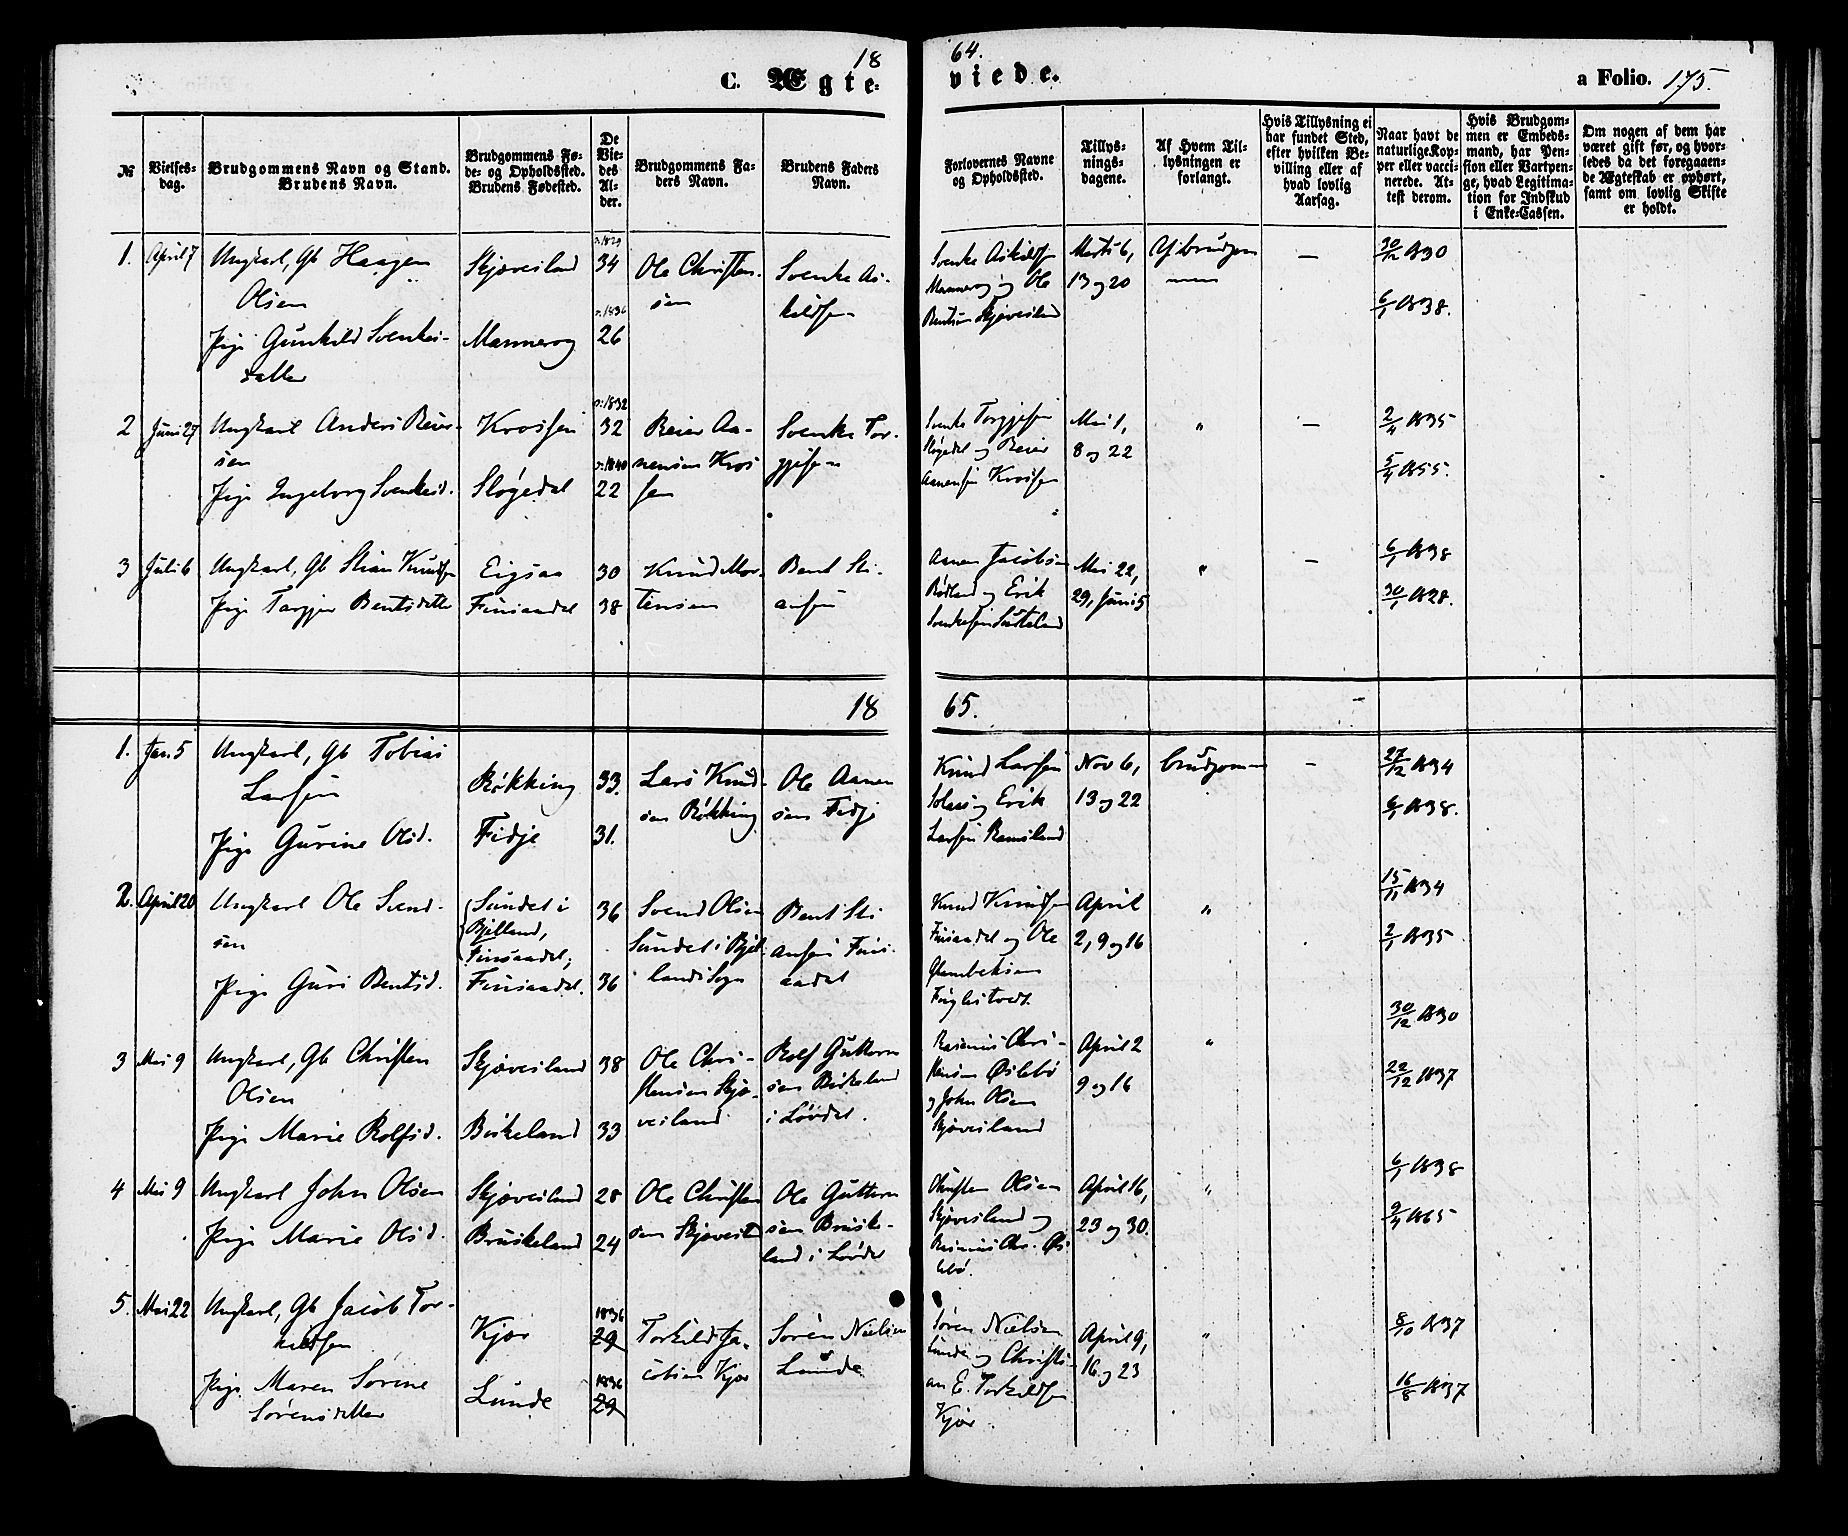 18
C. Ægte-
№
Vielses-
dag.
Brudgommens Navn og Stand.
Brudens Navn.
Brudgommens Fø-
de- og Opholdssted.
Brudens Fødested.
De
Vie-
des
Al-
der.
Brudgommens Fa-
ders Navn.
Brudens Faders
Navn.
64.
viede.
a Folio. 175.
Forlovernes Navne
og Opholdssted.
Tillys-
nings-
dagene.
Af Hvem Til-
lysningen er
forlangt.
Hvis Tillysning ei
har fundet Sted,
efter hvilken Be-
villing eller af
hvad lovlig
Aarsag.
Naar havt de
naturlige Kop-
per eller vacci-
nerede. At-
test derom.
Hvis Brudgom-
men er Embeds-
mand, har Pen-
sion eller Vartpen-
ge, hvad Legitima-
tion for Indskud
i Enke-Cassen.
Om nogen af dem har
været gift før, og hvor-
ledes da det foregaaen-
de Ægteskab er ophørt,
samt om lovlig Skifte
er holdt.
1. April 7
Ungkarl, Gb Haagen
Olsen
Pige Gunhild Svenkes-
datter
Skjæveiland
Mannerog
f. 1829
34
f. 1836
26
Ole Christen-
sen
Svenke As-
kildsen
Svenke Askildsen
Mannerog og Ole
Bentsen Skjæveisland
Marts 6,
13 og 20
Af brudgom-
men
—
30/12 1830
6/1 1838.
2 Juni 27
Ungkarl Anders Reier-
sen
Pige Ingeborg Svenkesd.
Krossen
Sløgedal
f. 1832
32
f. 1840
22
Reier Aa-
nensen Kros
sen
Svenke Tor-
gjesen
Svenke Torgjesen
Sløgedal og Reier
Aanensen Krossen
Mai 1,
8 og 22
"
—
2/4 1835
5/4 1855.
3 Juli 6
Ungkarl, Gb Stian Knudsen
Pige Torgjer Bentsdatter
Eigsaa
Finsaadal
30
38
Knud Mor-
tensen
Bent Sti-
ansen
Aanen Jacobsen
Rødland og Erik
Svenkesen
Mai 22,
29, Juni 5
"
—
6/1 1838
30/1 1828.
18
65.
1. Jan. 5
Ungkarl, Gb Tobias
Larsen
Pige Gurine Olsd.
Røkking
Fidje
33.
31.
Lars Knud-
sen Røkking
Ole Aanen
sen Fidje
Knud Larsen
Solaas og Erik
Larsen Ramsland
Nov 6,
13 og 22
brudgommen
—
27/12 1834
6/1 1838.
2. April 20
Ungkarl Ole Svend-
sen
Pige Guri Bentsd.
Sundet i
Bjelland,
Finsaadal;
Finsaadal.
36
36
Svend Olsen
Sundet i Bjel-
lands Sogn
Bent Sti
ansen Fins-
aadal
Knud Knudsen
Finsaadal og Ole
April
2, 9 og 16
"
15/11 1834
2/1 1835
3 Mai 9
Ungkarl, Gb Christen
Olsen
Pige Marie Rolfsd.
Skjæveisland
Birkeland
38
33
Ole Chri-
stensen Skjæ-
veisland
Rolf Guttorm
sen Birkeland
i Løvdal.
Rasmus Chri-
stensen Øslebø
og John Olsen
Skjæveisland
April 2
9 og 16
"
30/12 1830
22/12 1837
4 Mai 9
Ungkarl John Olsen
Pige Marie Olsd.
Skjæveisland
Bruskeland
28
24
Ole Christen
sen Skjæveisld
Ole Guttorm
sen Bruske-
land i Løvdal
Christen Olsen
Skjæveisland og
Rasmus Chr. Øs
lebø.
April 16,
23 og 30.
"
6/1 1838
9/4 1865
5. Mai 22
Ungkarl, Gb Jacob Tor-
kildsen
Pige Maren Sørine
Sørensdatter
Kjær
Lunde
1836
29
1836
29
Torkild Ja-
cobsen Kjær
Søren Nielsen
Lunde
Søren Nielsen
Lunde og Christi-
an E. Torkildsen
Kjær
April 9,
16 og 23
"
8/10 1837
16/8 1837